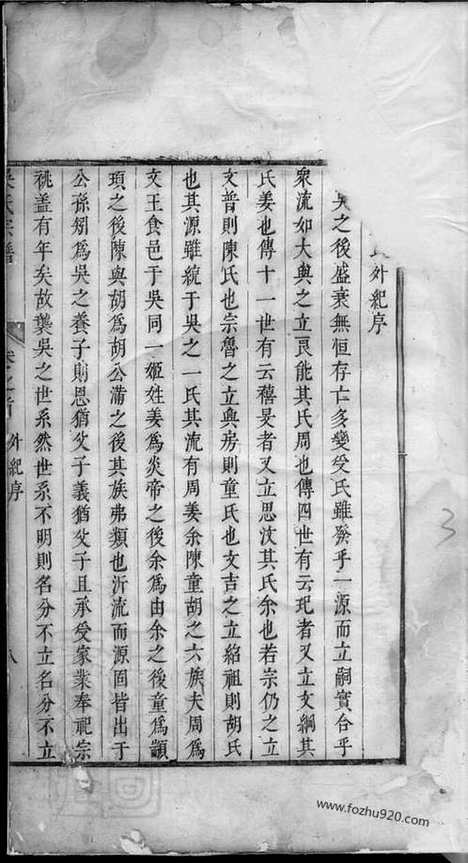 氏外紀序
吳之後盛衰無恒存亡多變受氏雖發乎一源而立嗣實合乎
衆流如大興之立良能其氏周也傳四世有云玘者又立文綱其
氏姜也傳十一世有云禧旻者又立思汶其氏余也若宗仍之立
文普則陳氏也宗魯之立與房則童氏也文吉之立紹祖則胡氏
也其源雖統于吳之一氏其流有周姜余陳童胡之六族夫周爲
文王食邑于吳同一姬姓姜爲炎帝之後余爲由余之後童爲顓
頊之後陳與胡爲胡公滿之後其族弗類也沂流而源固皆出于
公孫矧爲吳之養子則恩猶父子義猶父子且承受家業奉祀宗
祧盖有年矣故襲吳之世系然世系不明則名分不立名分不立
吳氏宗譜
卷之首
外紀序
八
3
www.fozhu920.com